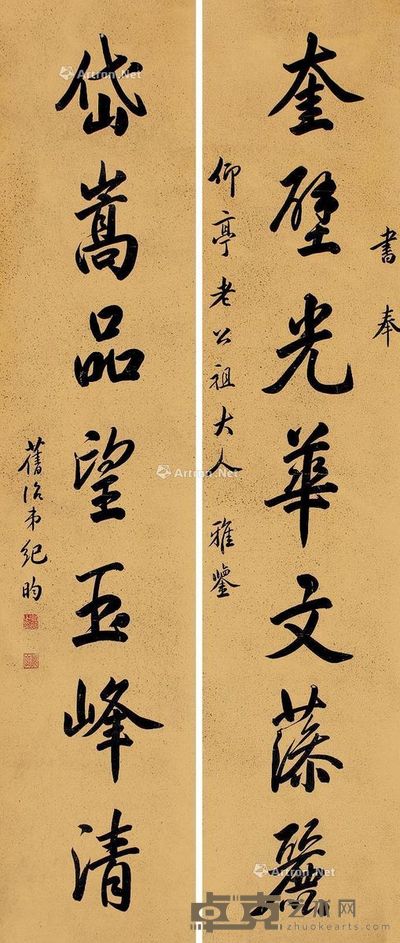 書奉
奎壁光華文藻麗
仰亭老公祖大人 雅鑒
岱嵩品望玉峰清
舊治弟紀昀
Artron.Net
Artron.Net
Artron.Net
Artron.Net
Artron.Net
卓克艺术网
zhuokearts.com